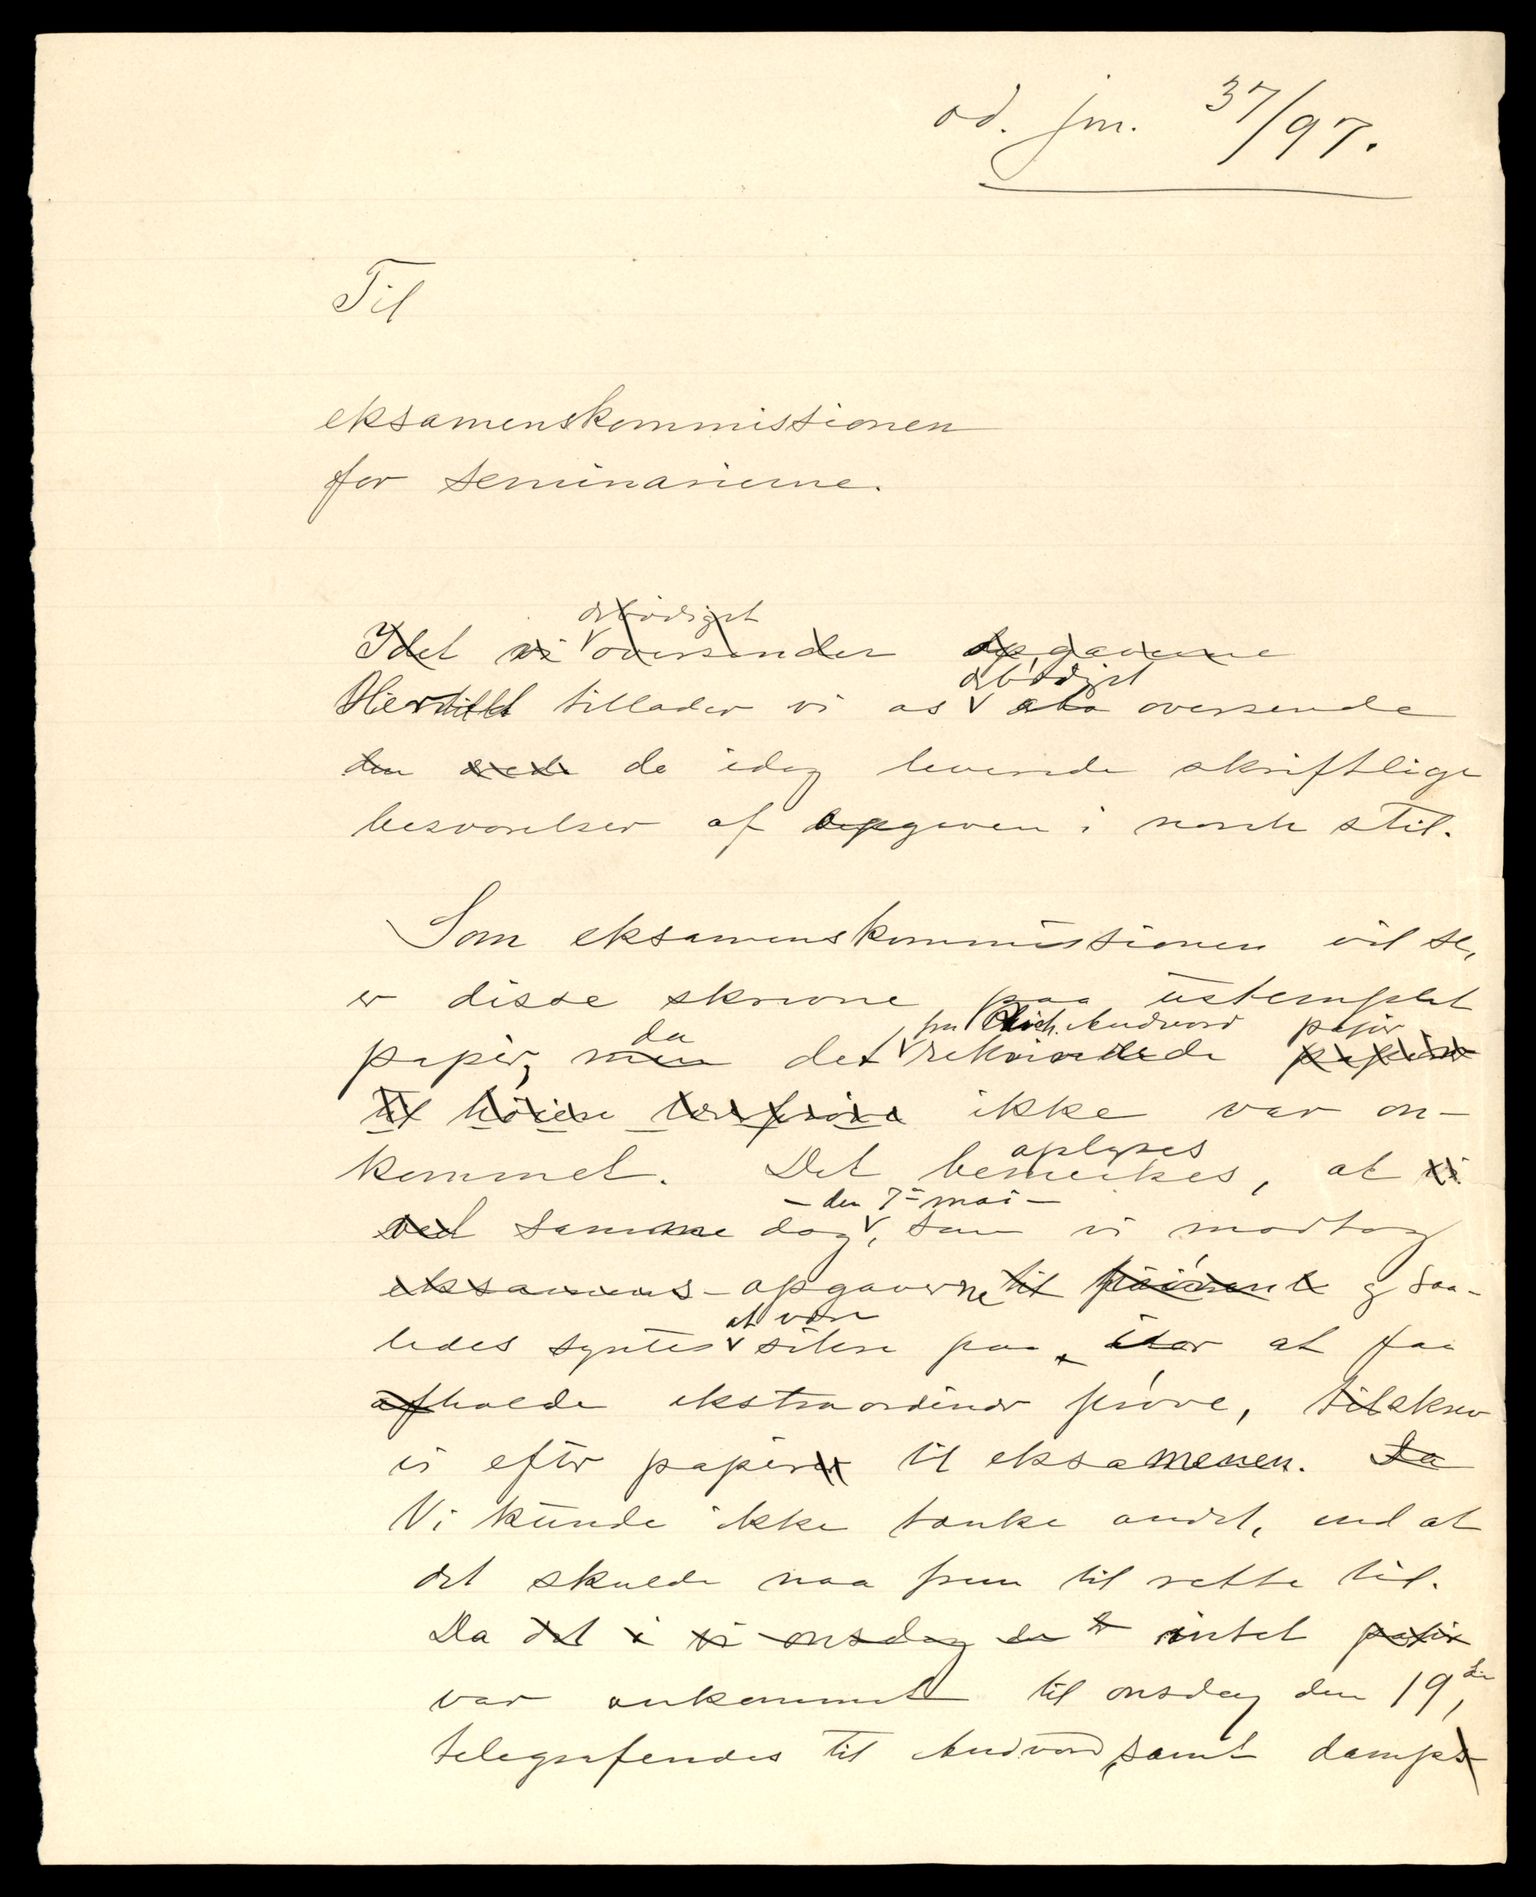 ad. jnr. 37/97.
Til
eksamenskommissionen
for seminarierne.
ærbödigst
Idet vi oversender opgaverne
ærbödigst
Hertill tillader vi os at oversende
den de idag leverede skriftlige
besvarelser af opgaven i norsk stil.
Som eksamenskommissionen vil se,
er disse skrevne paa ustemplet
da fra Rich. Andvord papir
papir, men det rekvirerede papir
til höiere ikke var an-
kommet. Det bemerkes, at vi
oplyses
– den 7de mai –
ved samme dag, som vi modtog
eksamens-opgaverne til prøven og saa-
at være
ledes syntes sikre paa at faa
afholde ekstraordinær pröve, tilskrev
vi efter papir til eksamenen. Da
Vi kunde ikke tænke andet, end at
det skulde naa frem til rette tid.
Da det i vi onsdag den intet papir
var ankommet til onsdag den 19de,
telegraferedes til Andvord, samt damps